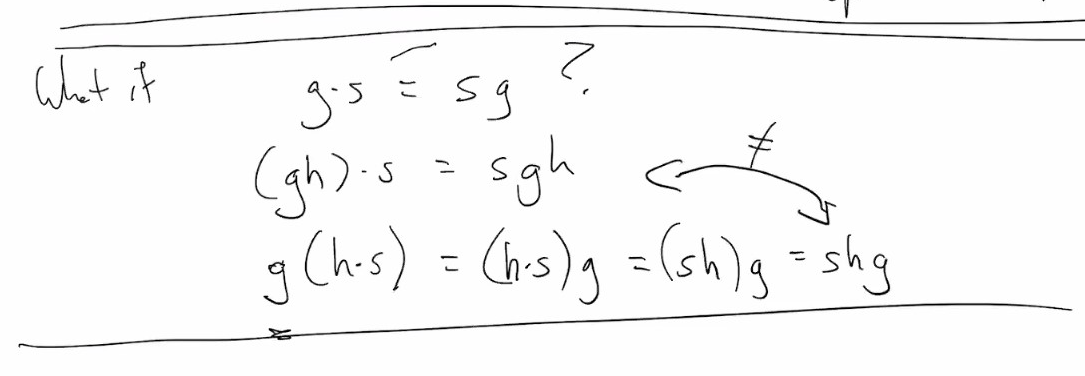 What if g·s = sg ?
(gh)·s = sgh ≠
g(h·s) = (h·s)g = (sh)g = shg